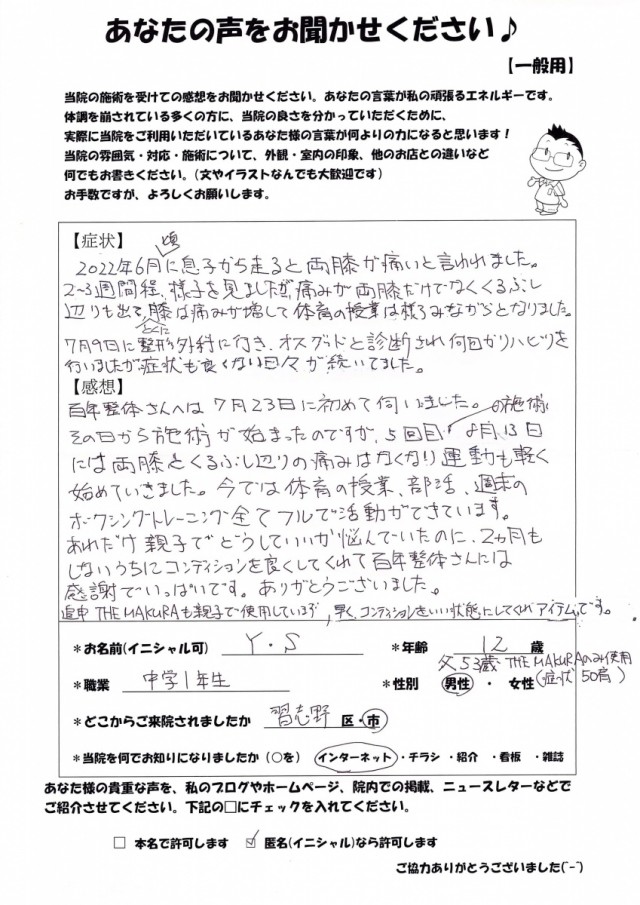 あなたの声をお聞かせください♪
【一般用】
当院の施術を受けての感想をお聞かせください。あなたの言葉が私の頑張るエネルギーです。
体調を崩されている多くの方に、当院の良さを分かっていただくために、
実際に当院をご利用いただいているあなた様の言葉が何よりの力になると思います！
当院の雰囲気・対応・施術について、外観・室内の印象、他のお店との違いなど
何でもお書きください。（文やイラストなんでも大歓迎です）
お手数ですが、よろしくお願いします。
【症状】
2022年6月頃に息子から走ると両膝が痛いと言われました。
2~3週間程、様子を見ましたが、痛みが両膝だけでなくくるぶし
辺りも出て、とくに膝は痛みが増して体育の授業は様子みながらとなりました。
7月9日に整形外科に行き、オスグッドと診断され何回かリハビリを
行いましたが症状も良くない日々が続いてました。
【感想】
百年整体さんへは7月23日に初めて伺いました。
その日から施術が始まったのですが、5回目の施術8月13日
には両膝とくるぶし辺りの痛みはなくなり運動も軽く
始めていきました。今では体育の授業、部活、週末の
ボクシングトレーニング全てフルで活動ができています。
あれだけ親子でどうしていいか悩んでいたのに、2ヵ月も
しないうちにコンディションを良くしてくれて百年整体さんには
感謝でいっぱいです。ありがとうございました。
途中THE MAKURAも親子で使用していますが、早く、コンディションをいい状態にしてくれるアイテムです。
*お名前(イニシャル可) Y・S *年齢 12 歳
父53歳 THE MAKURAのみ使用
(症状 50肩)
*職業 中学1年生 *性別 男性 ・ 女性
*どこからご来院されましたか 習志野 区・市
*当院を何でお知りになりましたか (○を) インターネット ・チラシ ・紹介 ・看板 ・雑誌
あなた様の貴重な声を、私のブログやホームページ、院内での掲載、ニュースレターなどで
ご紹介させてください。下記の□にチェックを入れてください。
□ 本名で許可します ☑ 匿名(イニシャル)なら許可します
ご協力ありがとうございました(^-^)